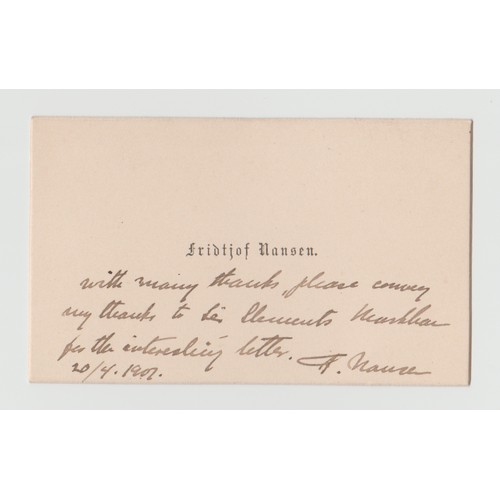 Fridtjof Nansen.
with many thanks, please convey
my thanks to Sir Clements Markham
for the interesting letter. F. Nansen
20/4. 1901.